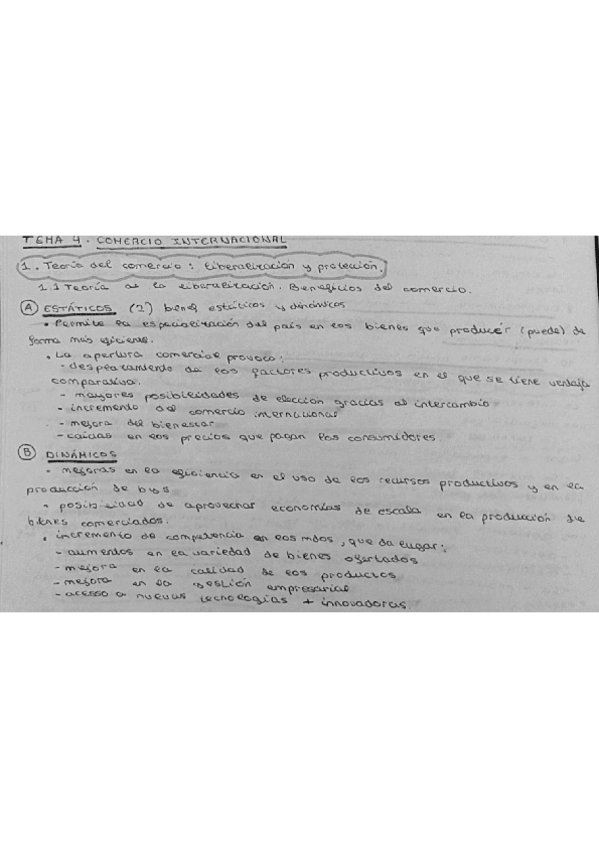 TEMA 4. COMERCIO INTERNACIONAL
1. Teoría del comercio: liberalización y protección.
1.1 Teoría de la liberalización. Beneficios del comercio.
A ESTÁTICOS (2) benef estáticos y dinámicos
• Permite la especialización del país en los bienes que producér (puede) de
forma más eficiente.
• La apertura comercial provoca:
- desplazamiento de los factores productivos en el que se tiene ventaja
comparativa.
- mayores posibilidades de elección gracias al intercambio
- incremento del comercio internacional
- mejora del bienestar
- caídas en los precios que pagan los consumidores
B DINÁMICOS
• mejoras en la eficiencia en el uso de los recursos productivos y en la
producción de bys
• posibilidad de aprovechar economías de escala en la producción de
bienes comerciados.
• incremento de competencia en los mdos, que da lugar:
- aumentos en la variedad de bienes ofertados
- mejora en la calidad de los productos
- mejora en la gestión empresarial
- acceso a nuevas tecnologías + innovadoras